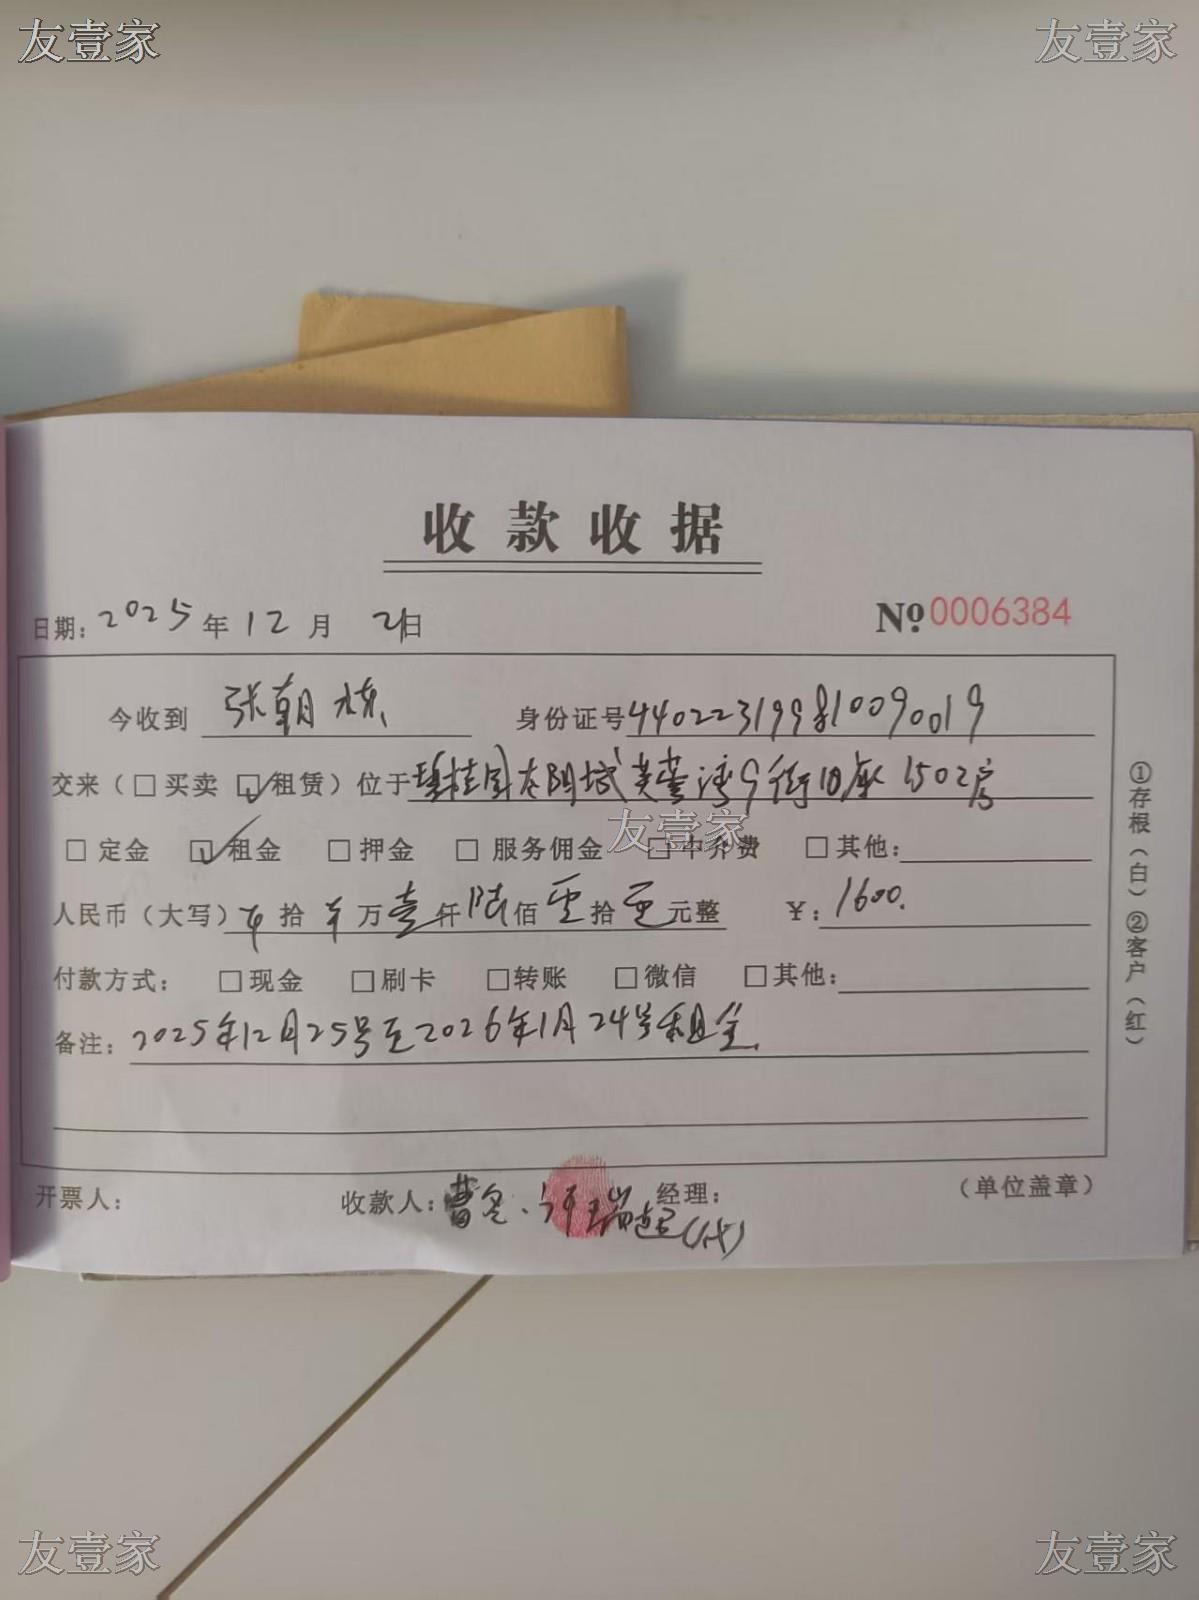 友壹家 友壹家
收款收据
日期：2025年12月21日 No 0006384
今收到 张朝栋 身份证号440223199810090019
交来（□买卖 ☑租赁）位于碧桂园太阳城芙蓉湾9街10座1502房
友壹家
□定金 ☑租金 □押金 □服务佣金 □中介费 □其他：
人民币（大写） 拾 万壹仟陆佰零拾零元整 ¥：1600.
付款方式： □现金 □刷卡 □转账 □微信 □其他：
备注：2025年12月25号至2026年1月24号租金.
开票人： 收款人：曹 、 许瑞超(代) 经理： （单位盖章）
①存根（白）②客户（红）
友壹家 友壹家